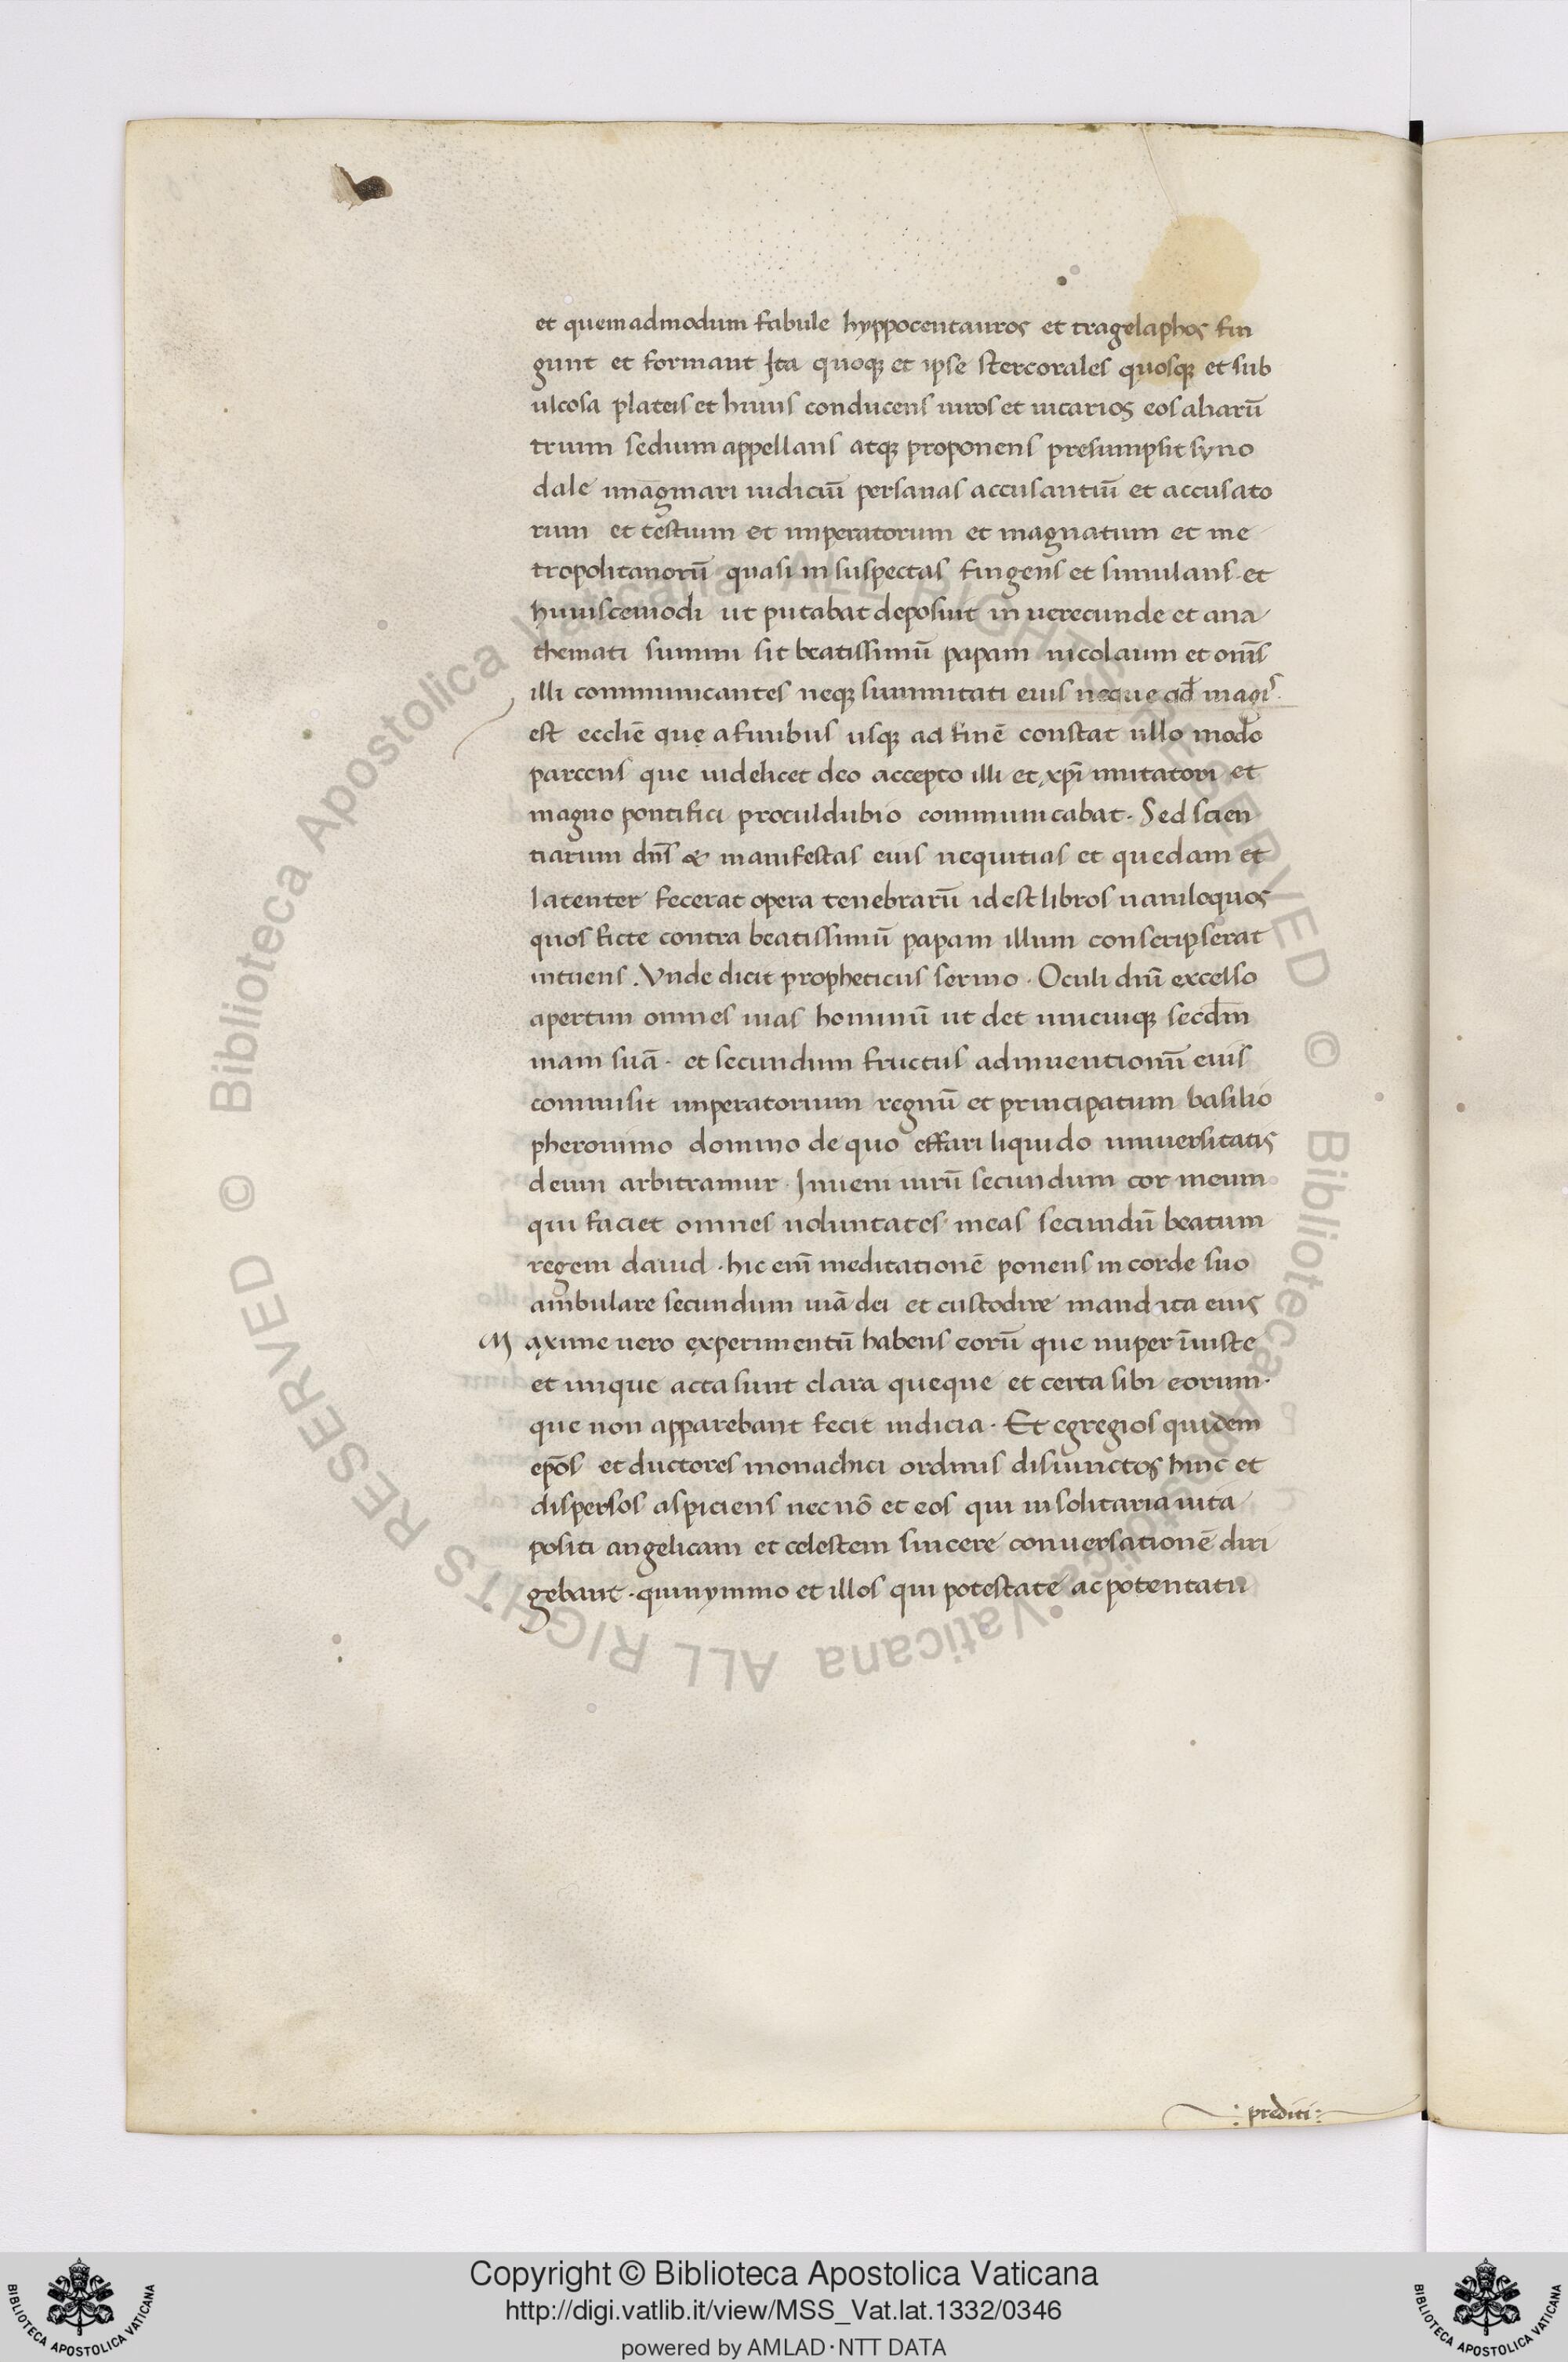 et quemadmodum fabule hyppocentauros et tragelaphos fin
gunt et formant Ita quoqꝫ et ipse stercorales quosqꝫ et sub
ulcosa plateis et huius conducens uiros et uicarios eos aliarū
trium sedium appellans atqꝫ proponens presumpsit syno
dale imaginari iudiciū personas accusantiū et accusato
rum et testium et imperatorum et magnatum et me
tropolitanorū quasi in suspectas fingens et simulans et
huiuscemodi ut putabat deposuit in uerecunde et ana
themati summi sit beatissimū papam nicolaum et om̄s
illi communicantes neqꝫ summitati eius neque qđ magis
est eccliē que a finibus usqꝫ ad finē constat ullo modo
parcens que uidelicet deo accepto illi et xp̄i imitatori et
magno pontifici proculdubio communicabat. Sed scien
tiarum dn̄s & manifestas eius nequitias et quedam et
latenter fecerat opera tenebrarū id est libros uaniloquos
quos ficte contra beatissimū papam illum conscripserat
intuens. Vnde dicit propheticus sermo. Oculi dn̄i excelso
aperti in omnes uias hominū ut det unicuiqꝫ secdm̄
uiam suā. et secundum fructus adinuentionū eius
commisit imperatorium regnū et principatum basilio
pheronimo domino de quo effari liquido uniuersitatis
deum arbitramur. Inueni uirū secundum cor meum
qui faciet omnes uoluntates meas secundū beatum
regem dauid. hic em̄ meditationē ponens in corde suo
ambulare secundum uiā dei et custodire mandata eius
Maxime uero experimentū habens eorū que nuper iniuste
et inique acta sunt clara queque et certa sibi eorum
que non apparebant fecit indicia. Et egregios quidem
ep̄os et ductores monachici ordinis disiunctos hinc et
dispersos aspiciens nec nō et eos qui in solitaria uita
positi angelicam et celestem sincere conuersationē diri
gebant. quinymmo et illos qui potestate ac potentatu
: prediti :
© Biblioteca Apostolica Vaticana ALL RIGHTS RESERVED © Biblioteca Apostolica Vaticana ALL RIGHTS RESERVED
Copyright © Biblioteca Apostolica Vaticana
http://digi.vatlib.it/view/MSS_Vat.lat.1332/0346
powered by AMLAD·NTT DATA
BIBLIOTECA APOSTOLICA VATICANA
BIBLIOTECA APOSTOLICA VATICANA